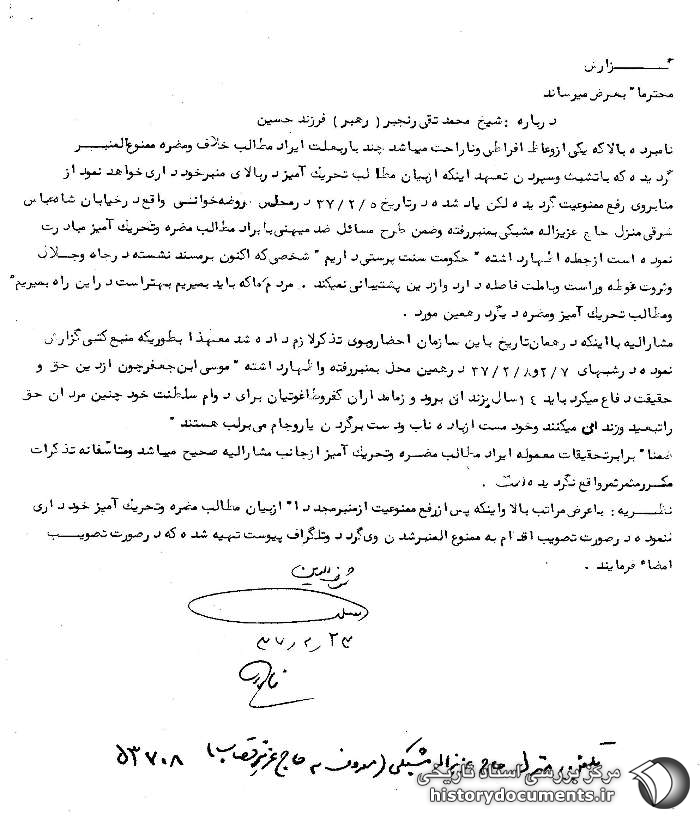 گـــــــزارش
محترما" بعرض میرساند
درباره : شیخ محمد تقی رنجبر ( رهبر ) فرزند حسین
نامبرده بالا که یکی از وعاظ افراطی و ناراحت میباشد چند بار بعلت ایراد مطالب خلاف و مضره ممنوع المنبـــر
گردیده که با تشبث و سپردن تعهد اینکه از بیان مطالب تحریک آمیز در بالای منبر خود داری خواهد نمود از
منابر وی رفع ممنوعیت گردیده لکن یاد شده در تاریخ ۳۷/۲/۵ در مجلس روضه خوانی واقع در خیابان شاه عباس
شرقی منزل حاج عزیزاله مشبکی بمنبر رفته و ضمن طرح مسائل ضد میهنی با یراد مطالب مضره و تحریک آمیز مبادرت
نموده است از جمله اظهار داشته " حکومت سنت پرستی داریم " شخصی که اکنون بر مسند نشسته در جاه و جــلال
و ثروت غوطه ور است و با ملت فاصله دارد و از دین پشتیبانی نمیکند . مردم ما که باید بمیریم بهتر است در این راه بمیریم"
و مطالب تحریک آمیز و مضره دیگر در همین مورد .
مشارالیه با اینکه در همان تاریخ باین سازمان احضار و بوی تذکر لازم داده شد معهذا بطوریکه منبع کشی گزارش
نموده در شبهای ۲/۷ و ۳۷/۲/۸ در همین محل بمنبر رفته و اظهار داشته " موسی ابن جعفر چون از دین حق و
حقیقت دفاع میکرد باید ۱۴ سال بزندان برود و زمامداران کفر و طاغوتیان برای دوام سلطنت خود چنین مردان حق
را تبعید و زندانی میکنند و خود مست از باده ناب و دست بر گردن یار و جام می بر لب هستند "
ضمنا" برابر تحقیقات معموله ایراد مطالب مضــره و تحریک آمیز از جانب مشارالیه صحیح میباشد و متأسفانه تذکرات
مکرر مثمر ثمر واقع نگردیده است .
نظریه : با عرض مراتب بالا و اینکه پس از رفع ممنوعیت از منبر مجددا" از بیان مطالب مضره و تحریک آمیز خود داری
ننموده در صورت تصویب اقدام به ممنوع المنبر شدن وی گردد و تلگراف پیوست تهیه شده که در صورت تصویـــب
امضاء فرمایند .
شرف الدین
۳۷٫۲٫۲۳
تلفن منزل حاج عزیزاله مشبکی (معروف به حاج عزیز قصاب) ۵۳۷۰۸
مرکز بررسی اسناد تاریخی
historydocuments.ir